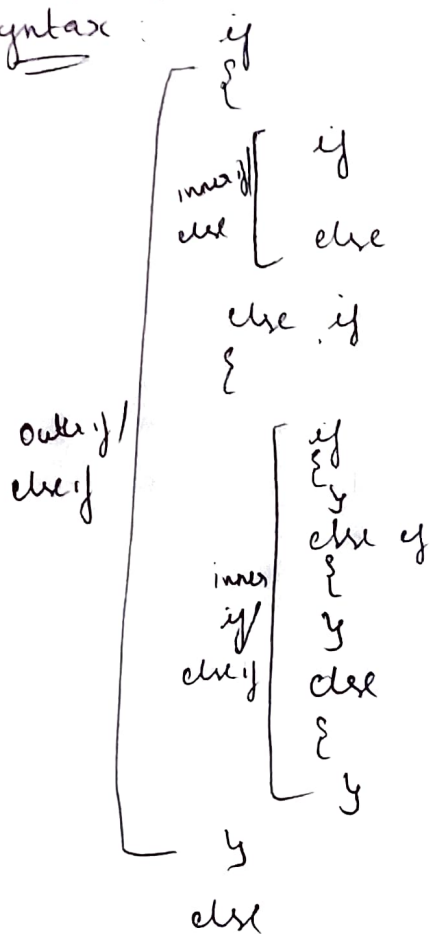 yntax : if
{
inner if/ if
else else
else if
{
outer if/
else if
if
{
}
else if
inner {
if/ }
else if else
{
}
}
else